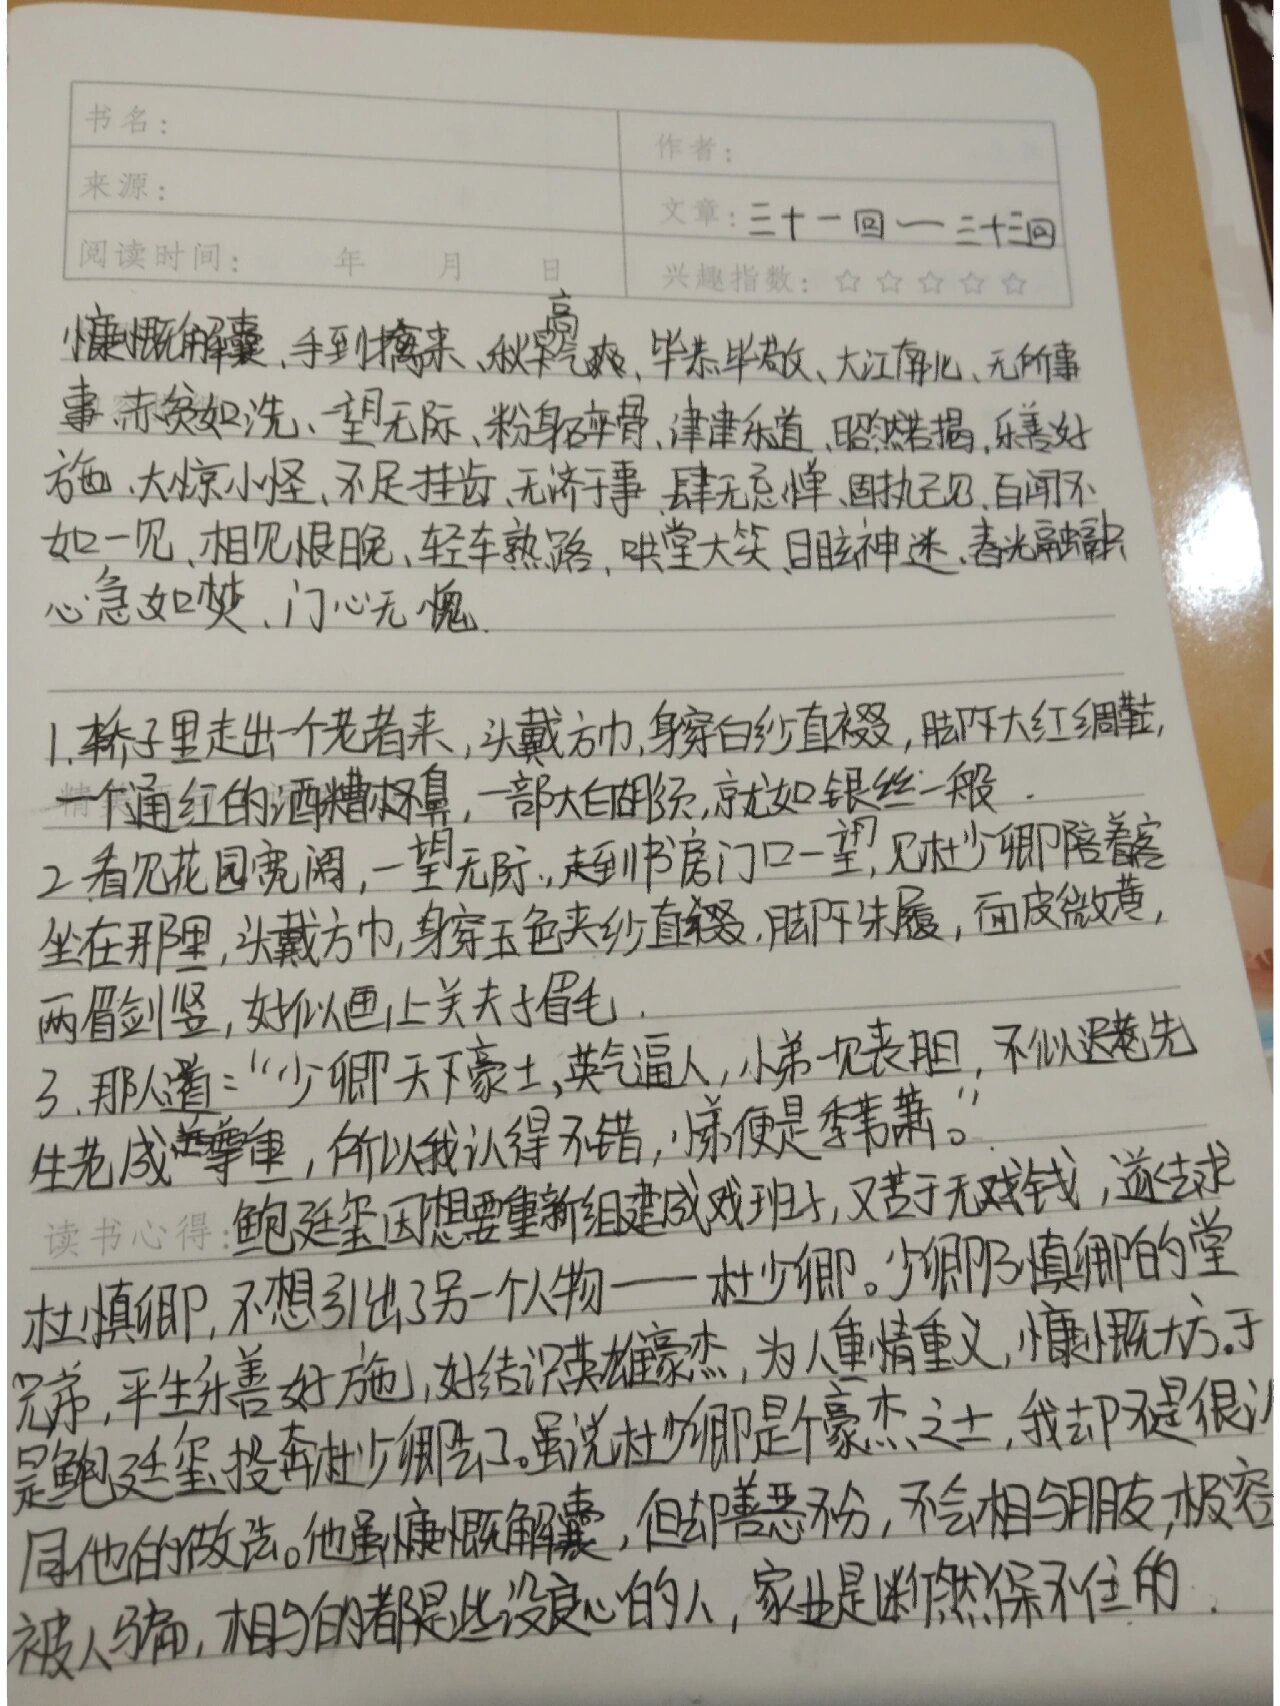 书名：
作者：
来源：
文章：三十一回一三十三回
阅读时间： 年 月 日
兴趣指数：☆☆☆☆☆
慷慨解囊、手到擒来、秋高气爽、毕恭毕敬、大江南北、无所事
事、赤贫如洗、一望无际、粉身碎骨、津津乐道、昭然若揭、乐善好
施、大惊小怪、不足挂齿、无济于事、肆无忌惮、固执己见、百闻不
如一见、相见恨晚、轻车熟路、哄堂大笑、目眩神迷、春光融融
心急如焚、门心无愧.
1.轿子里走出一个老者来，头戴方巾，身穿白纱直裰，脚下大红绸鞋，
一个通红的酒糟鼻，一部大白胡须，就如银丝一般.
2.看见花园宽阔，一望无际.，走到书房门口一望，见杜少卿陪着客
坐在那里，头戴方巾，身穿玉色夹纱直裰，脚下朱履，面皮微黄，
两眉剑竖，好似画上关夫子眉毛.
3.那人道：“少卿天下豪士，英气逼人，小弟一见丧胆，不似迟老先
生老成尊重，所以我认得不错，小弟便是季苇萧。”
读书心得：鲍廷玺因想要重新组建成戏班子，又苦于无钱，遂去求
杜慎卿，不想引出了另一个人物——杜少卿。少卿乃慎卿的堂
兄弟，平生乐善好施，好结识英雄豪杰，为人重情重义，慷慨大方。于
是鲍廷玺投奔杜少卿去了。虽说杜少卿是个豪杰之士，我却不是很认
同他的做法。他虽慷慨解囊，但却善恶不分，不会相与朋友，极容
被人骗，相与的都是些没良心的人，家业是断然保不住的.